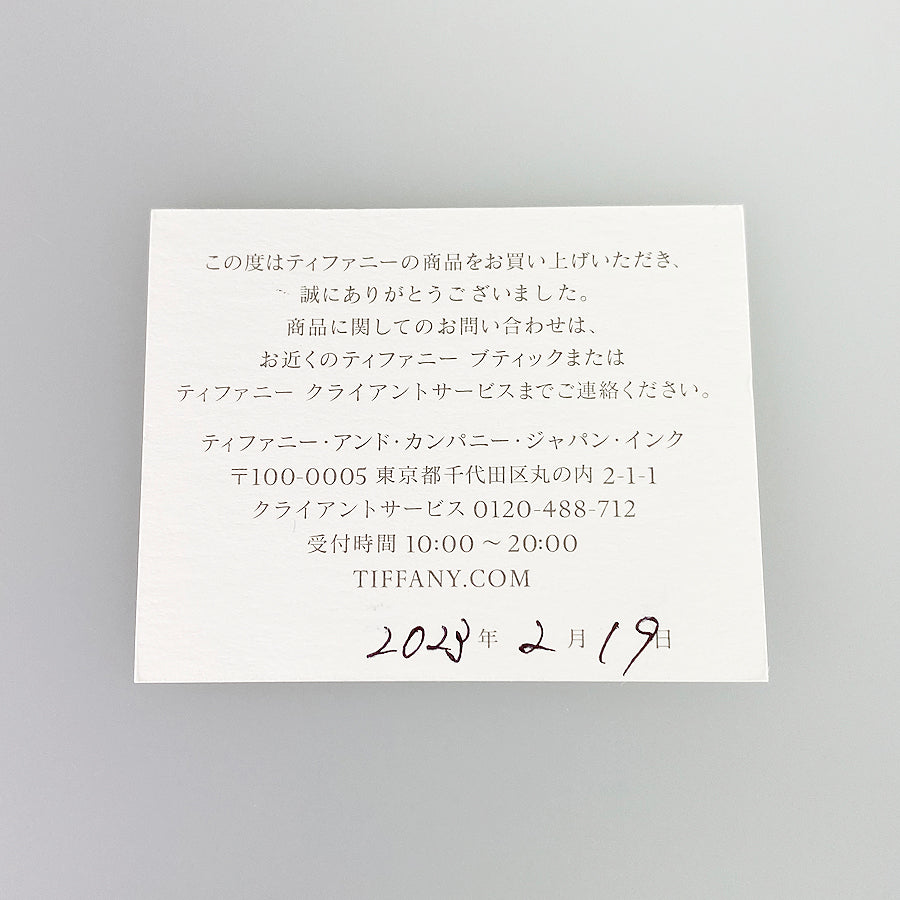 この度はティファニーの商品をお買い上げいただき、
誠にありがとうございました。
商品に関してのお問い合わせは、
お近くのティファニー ブティックまたは
ティファニー クライアントサービスまでご連絡ください。
ティファニー・アンド・カンパニー・ジャパン・インク
〒100-0005 東京都千代田区丸の内 2-1-1
クライアントサービス 0120-488-712
受付時間 10:00 〜 20:00
TIFFANY.COM
2023年 2月 19日